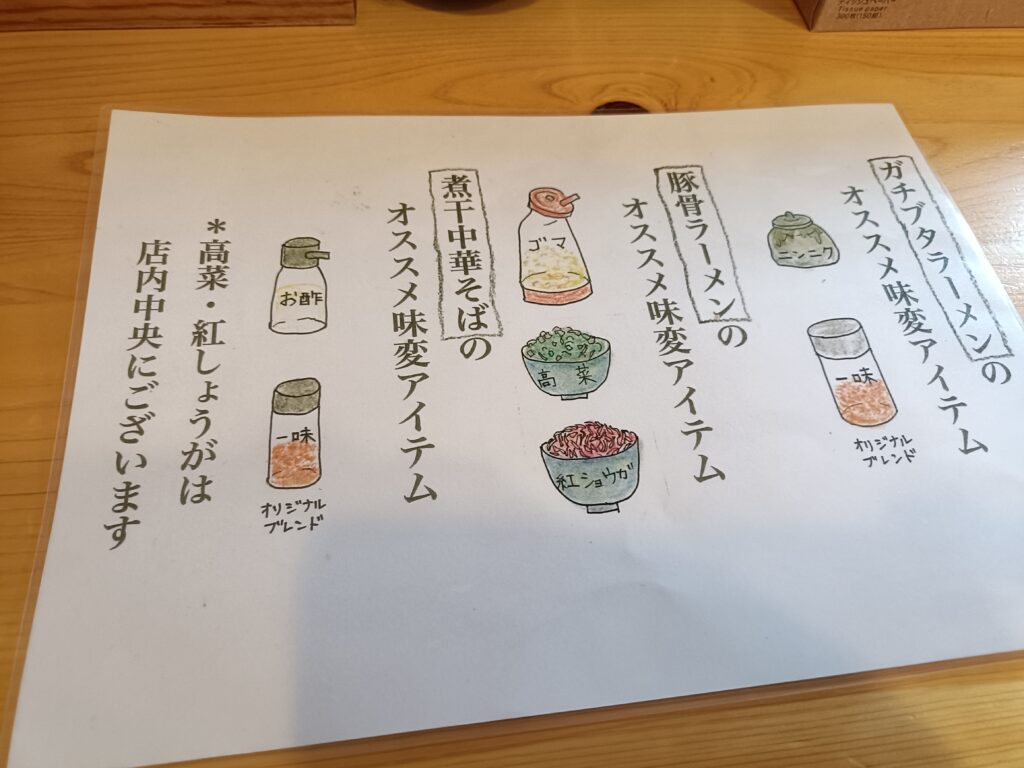 ガチブタラーメンの
オススメ味変アイテム
ニンニク
一味
オリジナル
ブレンド
豚骨ラーメンの
オススメ味変アイテム
ゴマ
高菜
紅ショウガ
煮干中華そばの
オススメ味変アイテム
お酢
一味
オリジナル
ブレンド
*高菜・紅しょうがは
店内中央にございます
ティシュペーパー
Tissue paper
300枚(150組)